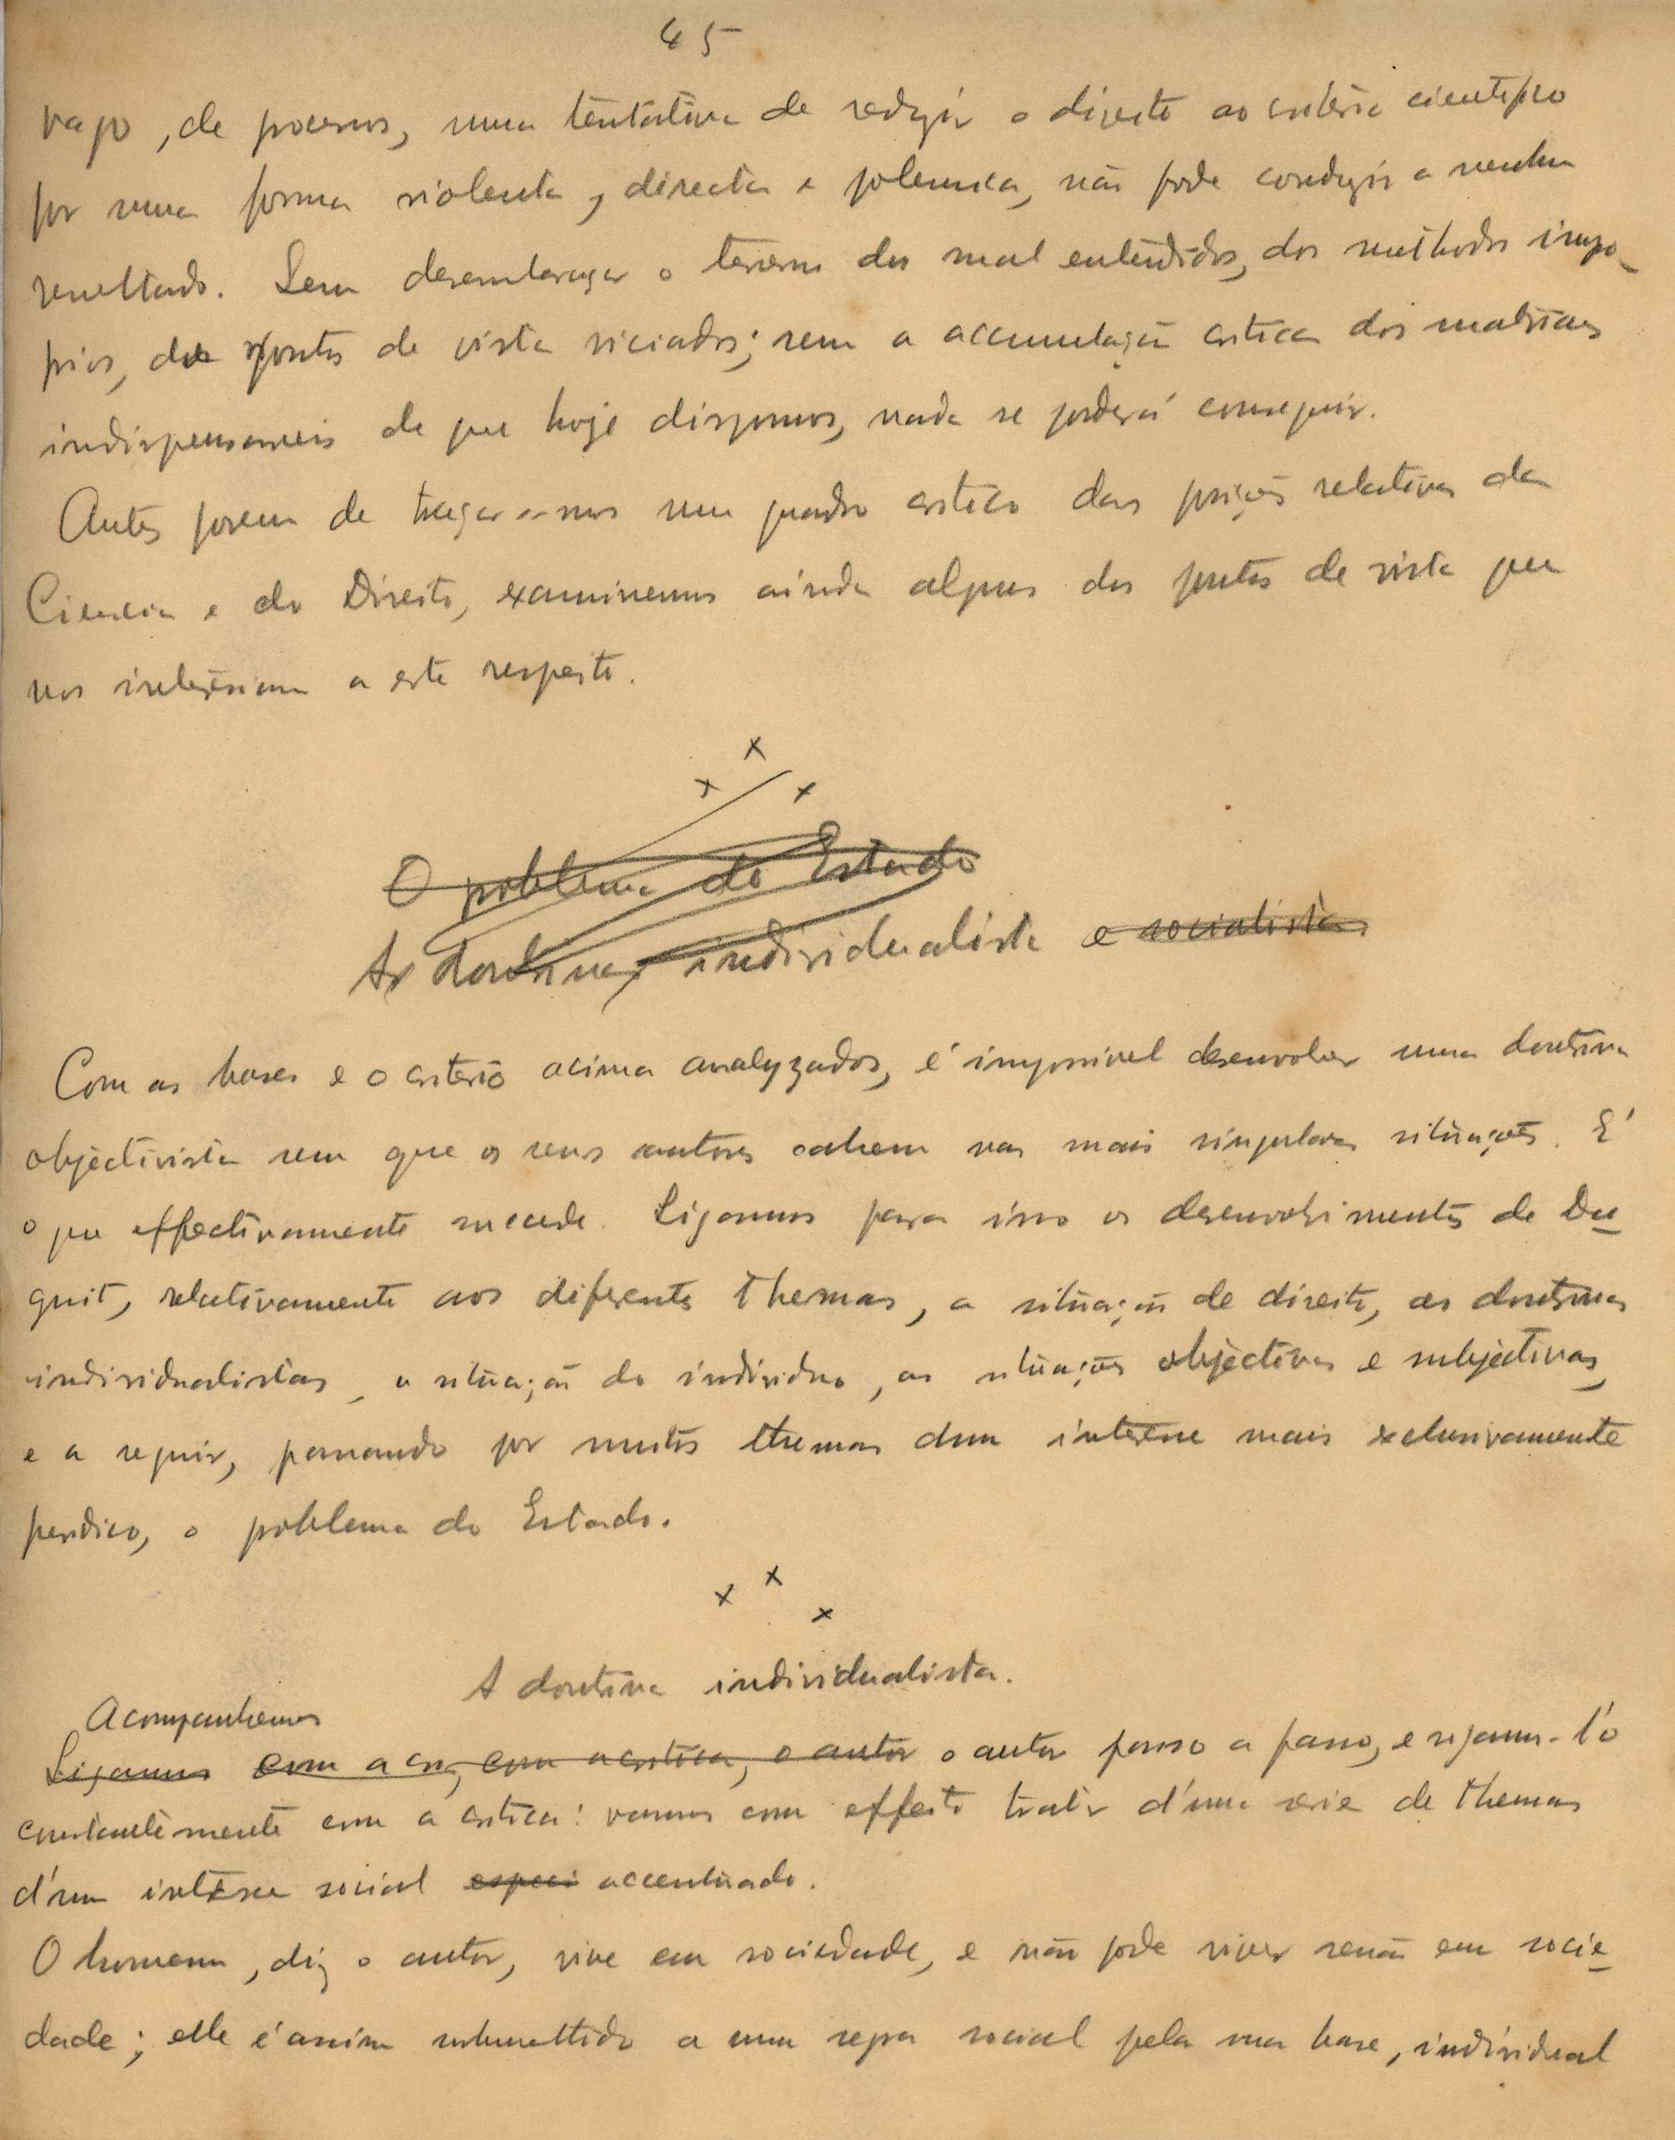 45
vago, de processos, uma tentativa de reduzir o direito ao criterio cientifico
por uma forma violenta, directa e polemica, não pode conduzir a nenhum
resultado. Sem desembaraçar o terreno dos mal entendidos, dos methodos impro-
prios, dos pontos de vista viciados; sem a accumulação critica dos materiaes
indispensaveis de que hoje dispomos, nada se poderá conseguir.
Antes porem de traçarmos um quadro critico das posições relativas da
Ciencia e do Direito, examinemos ainda alguns dos pontos de vista que
nos interessam a este respeito.
x x x
O problema do Estado
As doutrinas individualista e socialista
Com as bases e o criterio acima analyzados, é impossivel desenvolver uma doutrina
objectivista sem que os seus autores cahem nas mais singulares situações. É
o que effectivamente succede. Sigamos para isso os desenvolvimentos de Du-
guit, relativamente aos diferentes themas, a situação de direito, as doutrinas
individualistas, a situação do individuo, as situações objectivas e subjectivas,
e a seguir, passando por muitos themas dum interesse mais exclusivamente
juridico, o problema do Estado.
x x x
A doutrina individualista.
Acompanhemos
Sigamos com a cri, com a critica, o autor o autor passo a passo, e sigamo-l'o
constantemente com a critica: vamos com effeito tratar d'uma serie de themas
d'um interesse social especi accentuado.
O homem, diz o autor, vive em sociedade, e não pode viver senão em socie-
dade; elle é assim submettido a uma regra social pela sua base, individual